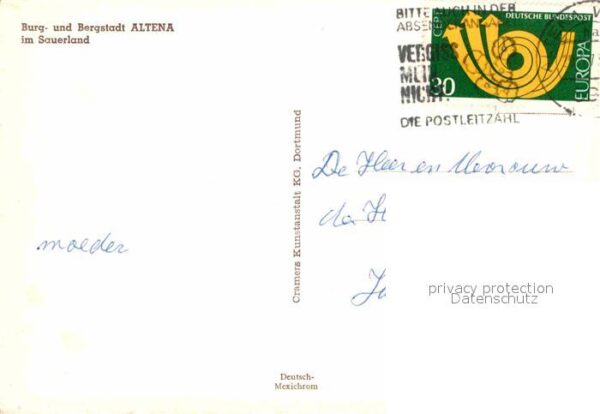 Burg- und Bergstadt ALTENA
im Sauerland
BITTE AUCH IN DER
VERGISS
MEIN
NICHT
DIE POSTLEITZAHL
CEPT
DEUTSCHE BUNDESPOST
EUROPA
30
Cramers Kunstanstalt KG. Dortmund
De Heer en Mevrouw
de
moeder
privacy protection
Datenschutz
Deutsch-
Mexichrom